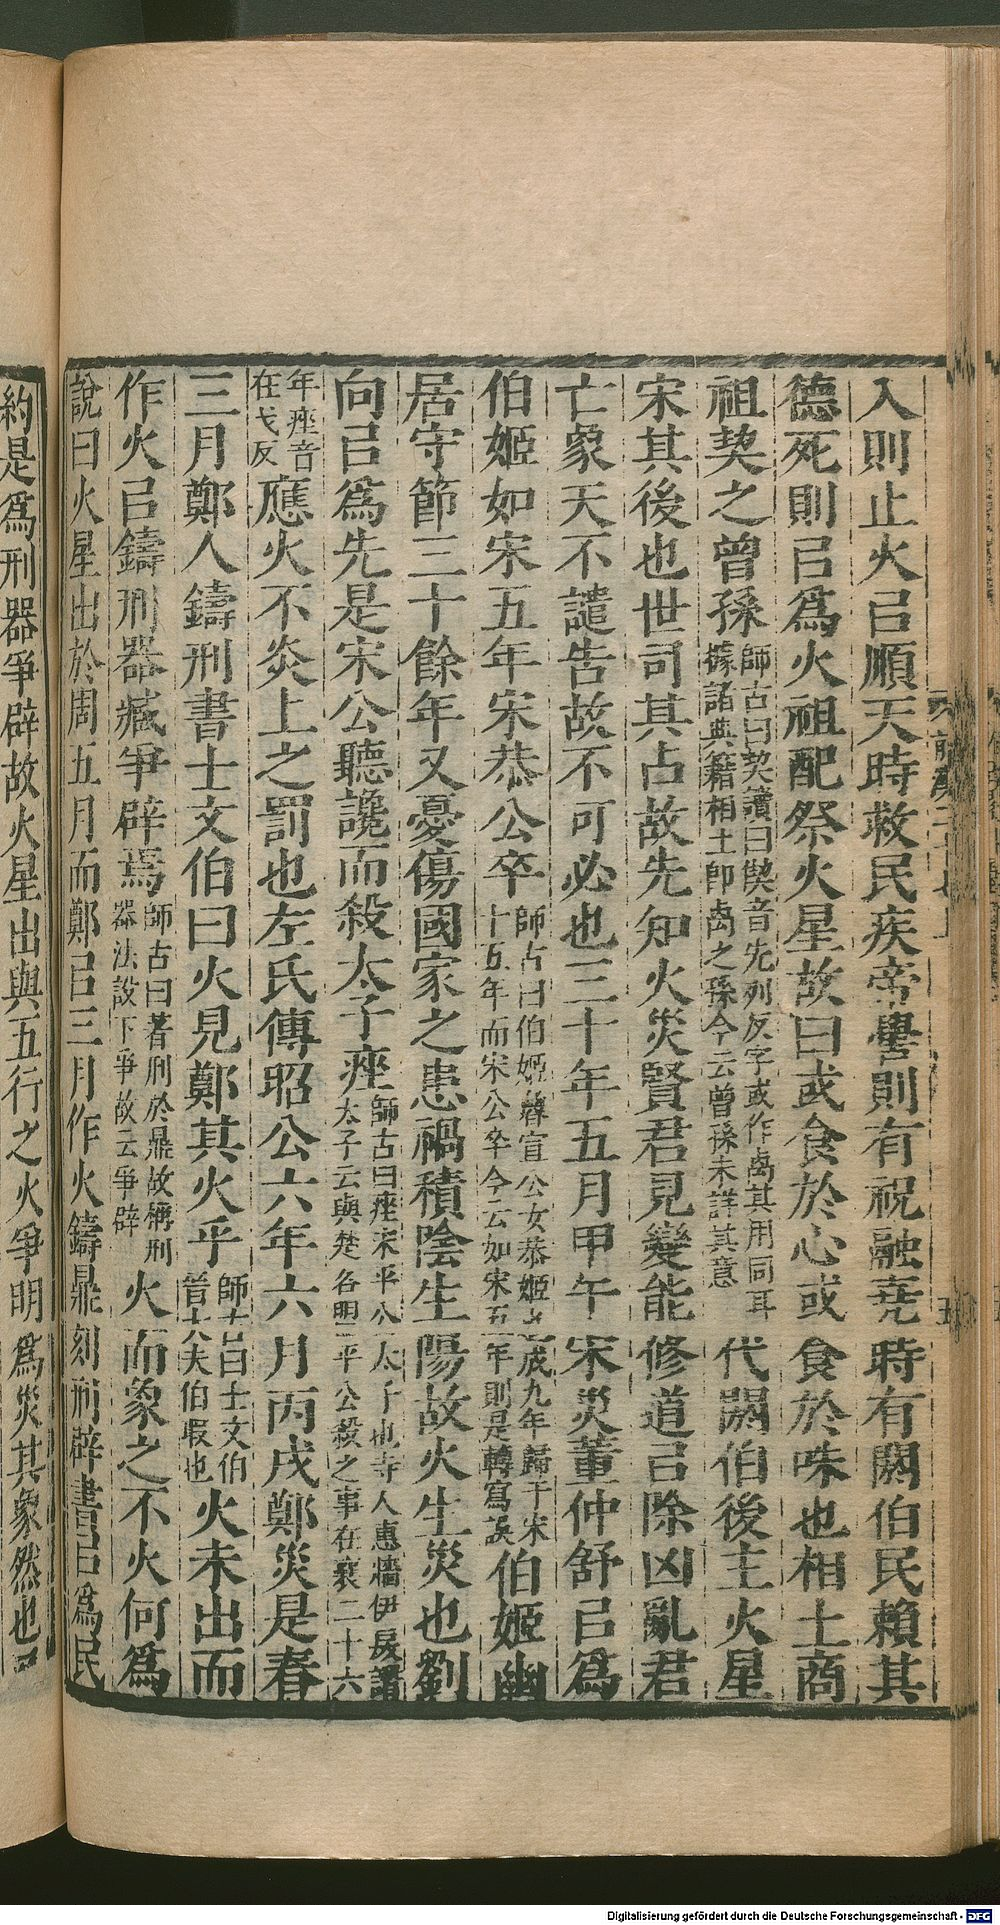 入則止火㠯順天時救民疾帝嚳則有祝融堯時有閼伯民賴其
德死則㠯爲火祖配祭火星故曰或食於心或食於咮也相土商
祖契之曾孫師古曰契讀曰偰音先列反字或作卨其用同耳據諸典籍相土卽卨之孫今云曾孫未詳其意代閼伯後主火星
宋其後也世司其占故先知火災賢君見變能修道㠯除凶亂君
亡象天不譴告故不可必也三十年五月甲午宋災董仲舒㠯爲
伯姬如宋五年宋恭公卒師古曰伯姬魯宣公女恭姬也成九年歸于宋十五年而宋公卒今云如宋五年則是轉寫誤伯姬幽
居守節三十餘年又憂傷國家之患禍積陰生陽故火生災也劉
向㠯爲先是宋公聽讒而殺太子痤師古曰痤宋平公太子也寺人惠牆伊戾譖太子云與楚客盟平公殺之事在襄二十六
年痤音在戈反應火不炎上之罰也左氏傳昭公六年六月丙戌鄭災是春
三月鄭人鑄刑書士文伯曰火見鄭其火乎師古曰士文伯晉大夫伯瑕也火未出而
作火㠯鑄刑器臧爭辟焉師古曰著刑於鼎故稱刑器法設下爭故云爭辟火而象之不火何爲
說曰火星出於周五月而鄭㠯三月作火鑄鼎刻刑辟書㠯爲民
約是爲刑器爭辟故火星出與五行之火爭明爲災其象然也
Digitalisierung gefördert durch die Deutsche Forschungsgemeinschaft - DFG